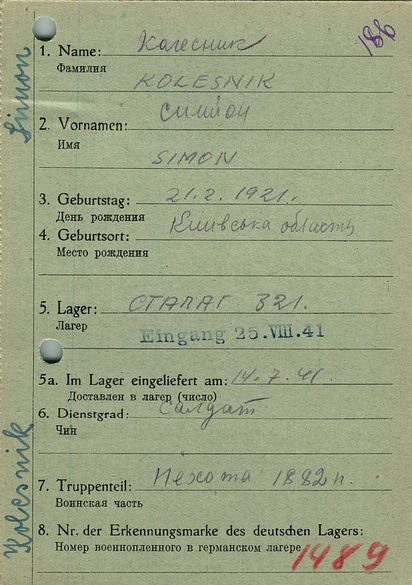 186
1. Name: Колесник
Фамилия
KOLESNIK
2. Vornamen: Симион
Имя
SIMON
3. Geburtstag: 21. 2. 1921.
День рождения
4. Geburtsort: Киивська область
Место рождения
5. Lager: СТАЛАГ 321.
Лагер
Eingang 25. VIII. 41
5a. Im Lager eingeliefert am: 14. 7. 41.
Доставлен в лагер (число)
6. Dienstgrad: Салдат
Чин
7. Truppenteil: Пехота 1882 п.
Воинская часть
8. Nr. der Erkennungsmarke des deutschen Lagers:
Номер военнопленного в германском лагере 1489
Simon
Kolesnik